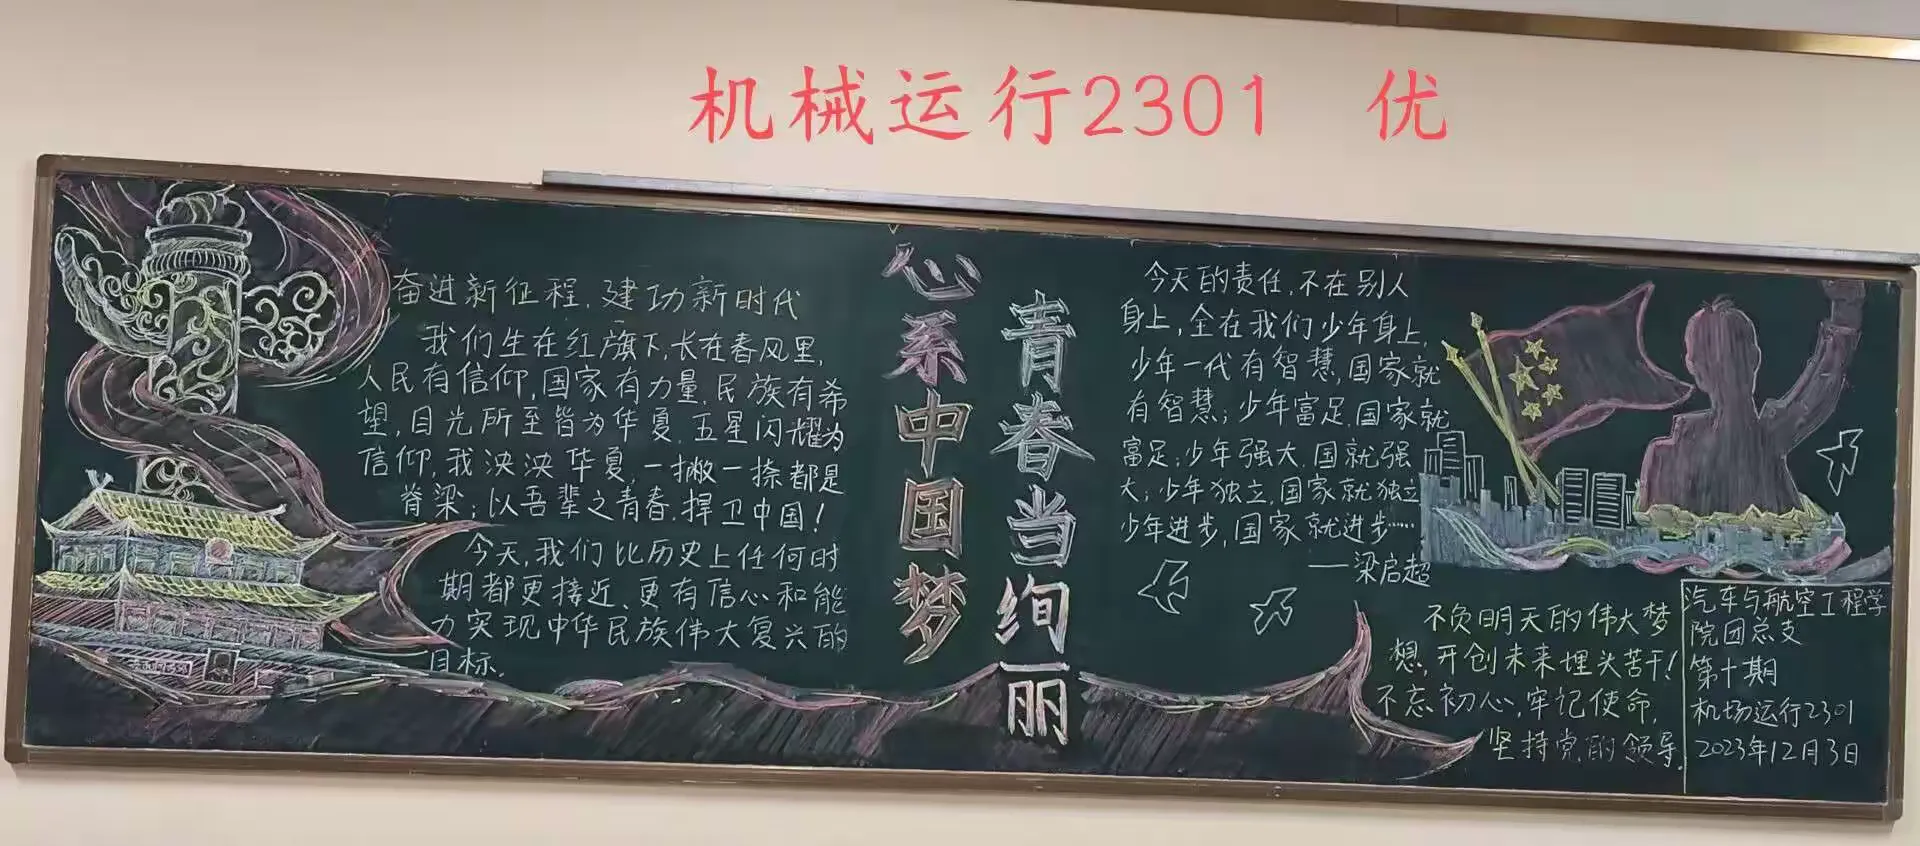 机械运行2301 优
奋进新征程,建功新时代
我们生在红旗下,长在春风里,
人民有信仰,国家有力量,民族有希
望,目光所至皆为华夏,五星闪耀为
信仰,我泱泱华夏,一撇一捺都是
脊梁;以吾辈之青春,捍卫中国!
今天,我们比历史上任何时
期都更接近、更有信心和能
力实现中华民族伟大复兴的
目标.
心系中国梦
青春当绚丽
今天的责任,不在别人
身上,全在我们少年身上,
少年一代有智慧,国家就
有智慧;少年富足,国家就
富足;少年强大,国就强
大;少年独立,国家就独立
少年进步,国家就进步……
——梁启超
不负明天的伟大梦
想,开创未来埋头苦干!
不忘初心,牢记使命,
坚持党的领导.
汽车与航空工程学
院团总支
第十期
机场运行2301
2023年12月3日